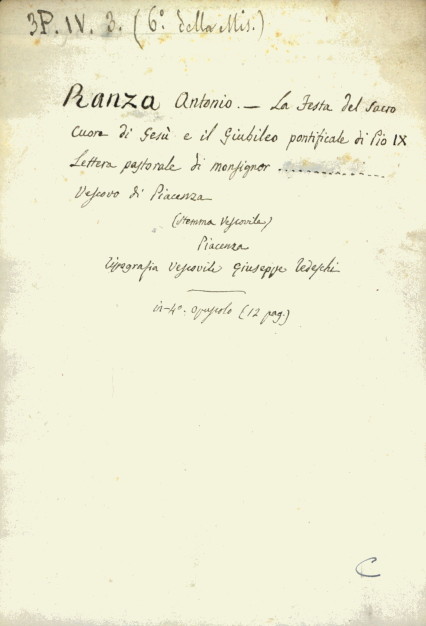 3P. IV. 3. (6º della Mis.)
Ranza Antonio. — La Festa del Sacro
Cuore di Gesù e il Giubileo pontificale di Pio IX
Lettera pastorale di monsignor ................
Vescovo di Piacenza
(Stemma Vescovile)
Piacenza
Tipografia Vescovile Giuseppe Tedeschi
in-4º. opuscolo (12 pag.)
C